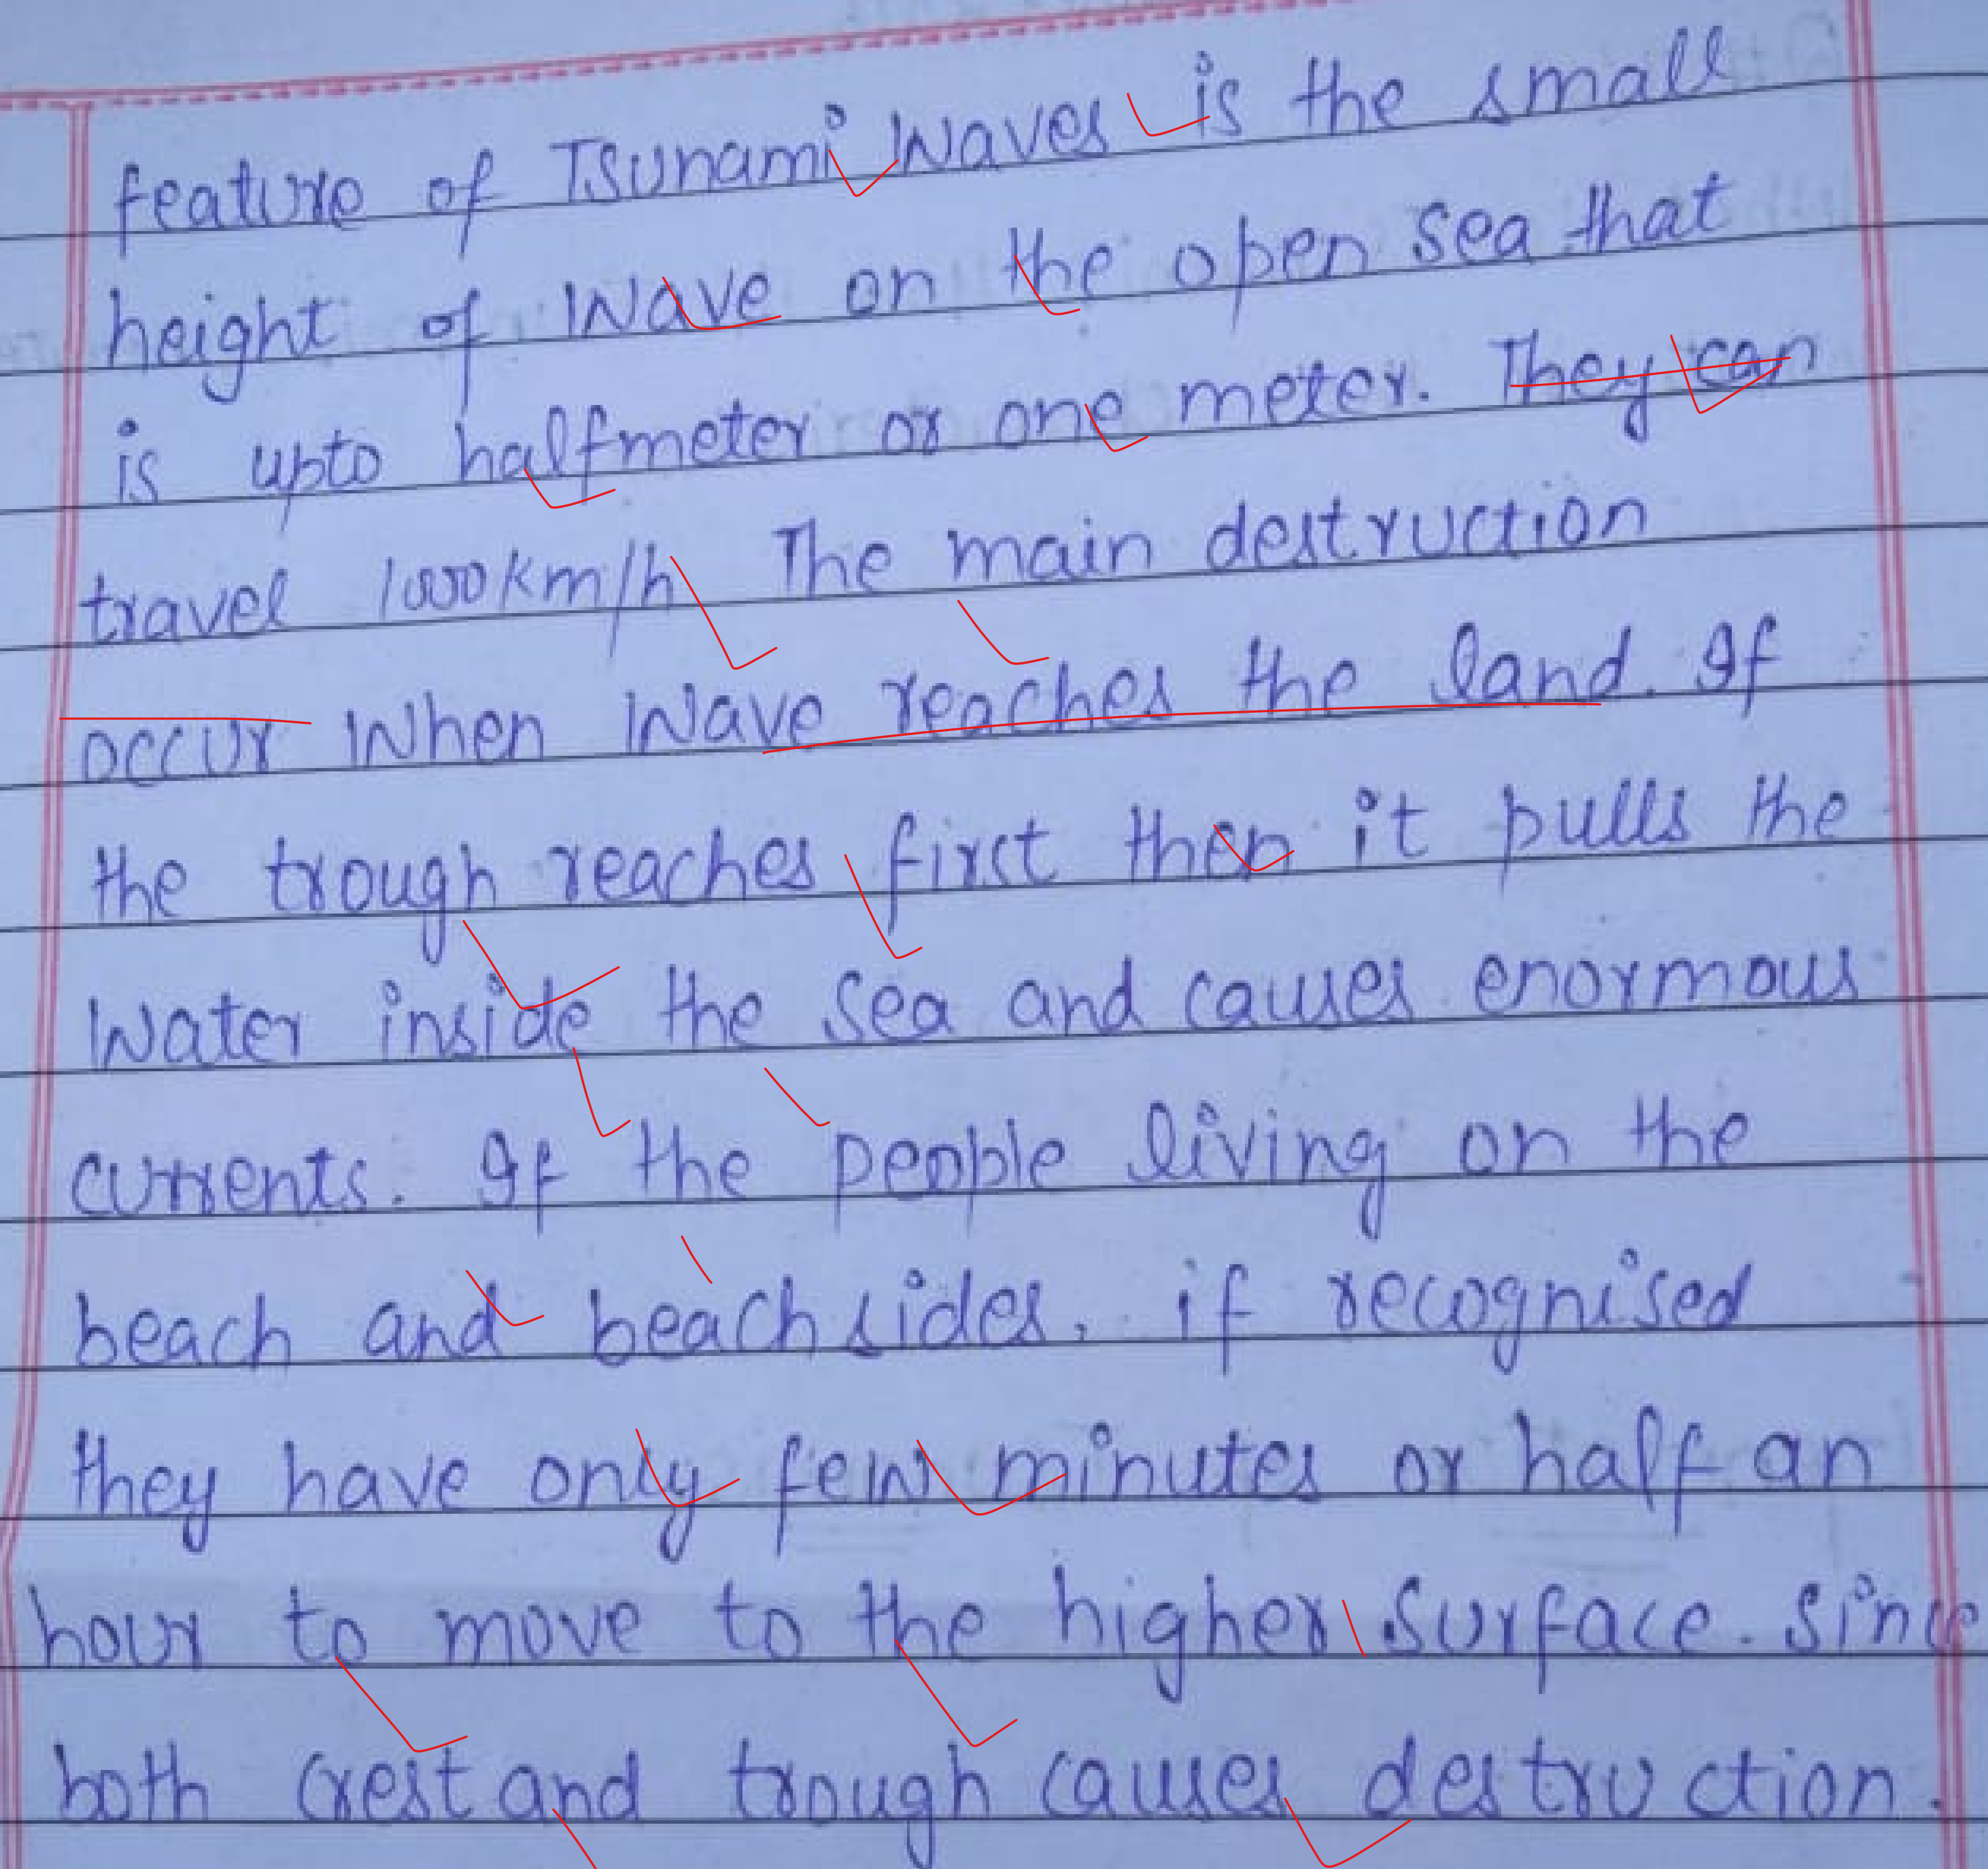 feature of Tsunami Waves is the small
height of Wave on the open sea that
is upto halfmeter or one meter. They can
travel 1000km/h The main destruction
occur When Wave reaches the land. If
the trough reaches first then it pulls the
Water inside the sea and causes enormous
currents. If the people living on the
beach and beach sides, if recognised
they have only few minutes or half an
hour to move to the higher surface. Since
both crest and trough causes destruction.